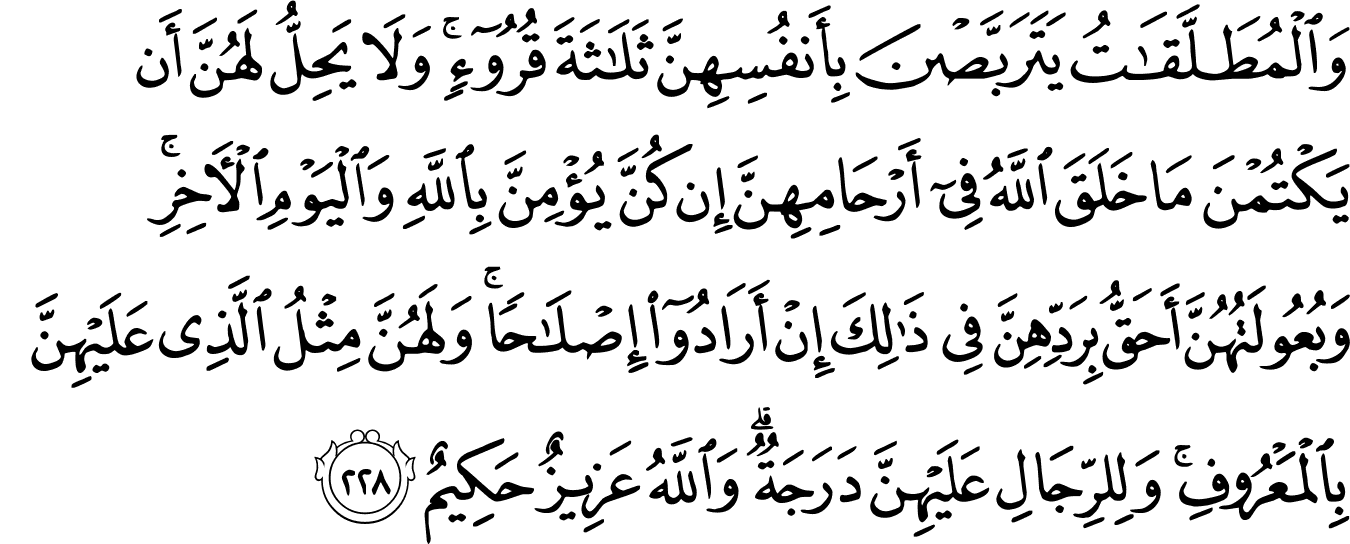 وَٱلْمُطَلَّقَـٰتُ يَتَرَبَّصْنَ بِأَنفُسِهِنَّ ثَلَـٰثَةَ قُرُوٓءٍ ۚ وَلَا يَحِلُّ لَهُنَّ أَن
يَكْتُمْنَ مَا خَلَقَ ٱللَّهُ فِىٓ أَرْحَامِهِنَّ إِن كُنَّ يُؤْمِنَّ بِٱللَّهِ وَٱلْيَوْمِ ٱلْـَٔاخِرِ ۚ
وَبُعُولَتُهُنَّ أَحَقُّ بِرَدِّهِنَّ فِى ذَٰلِكَ إِنْ أَرَادُوٓا۟ إِصْلَـٰحًا ۚ وَلَهُنَّ مِثْلُ ٱلَّذِى عَلَيْهِنَّ
بِٱلْمَعْرُوفِ ۚ وَلِلرِّجَالِ عَلَيْهِنَّ دَرَجَةٌ ۗ وَٱللَّهُ عَزِيزٌ حَكِيمٌ ٢٢٨